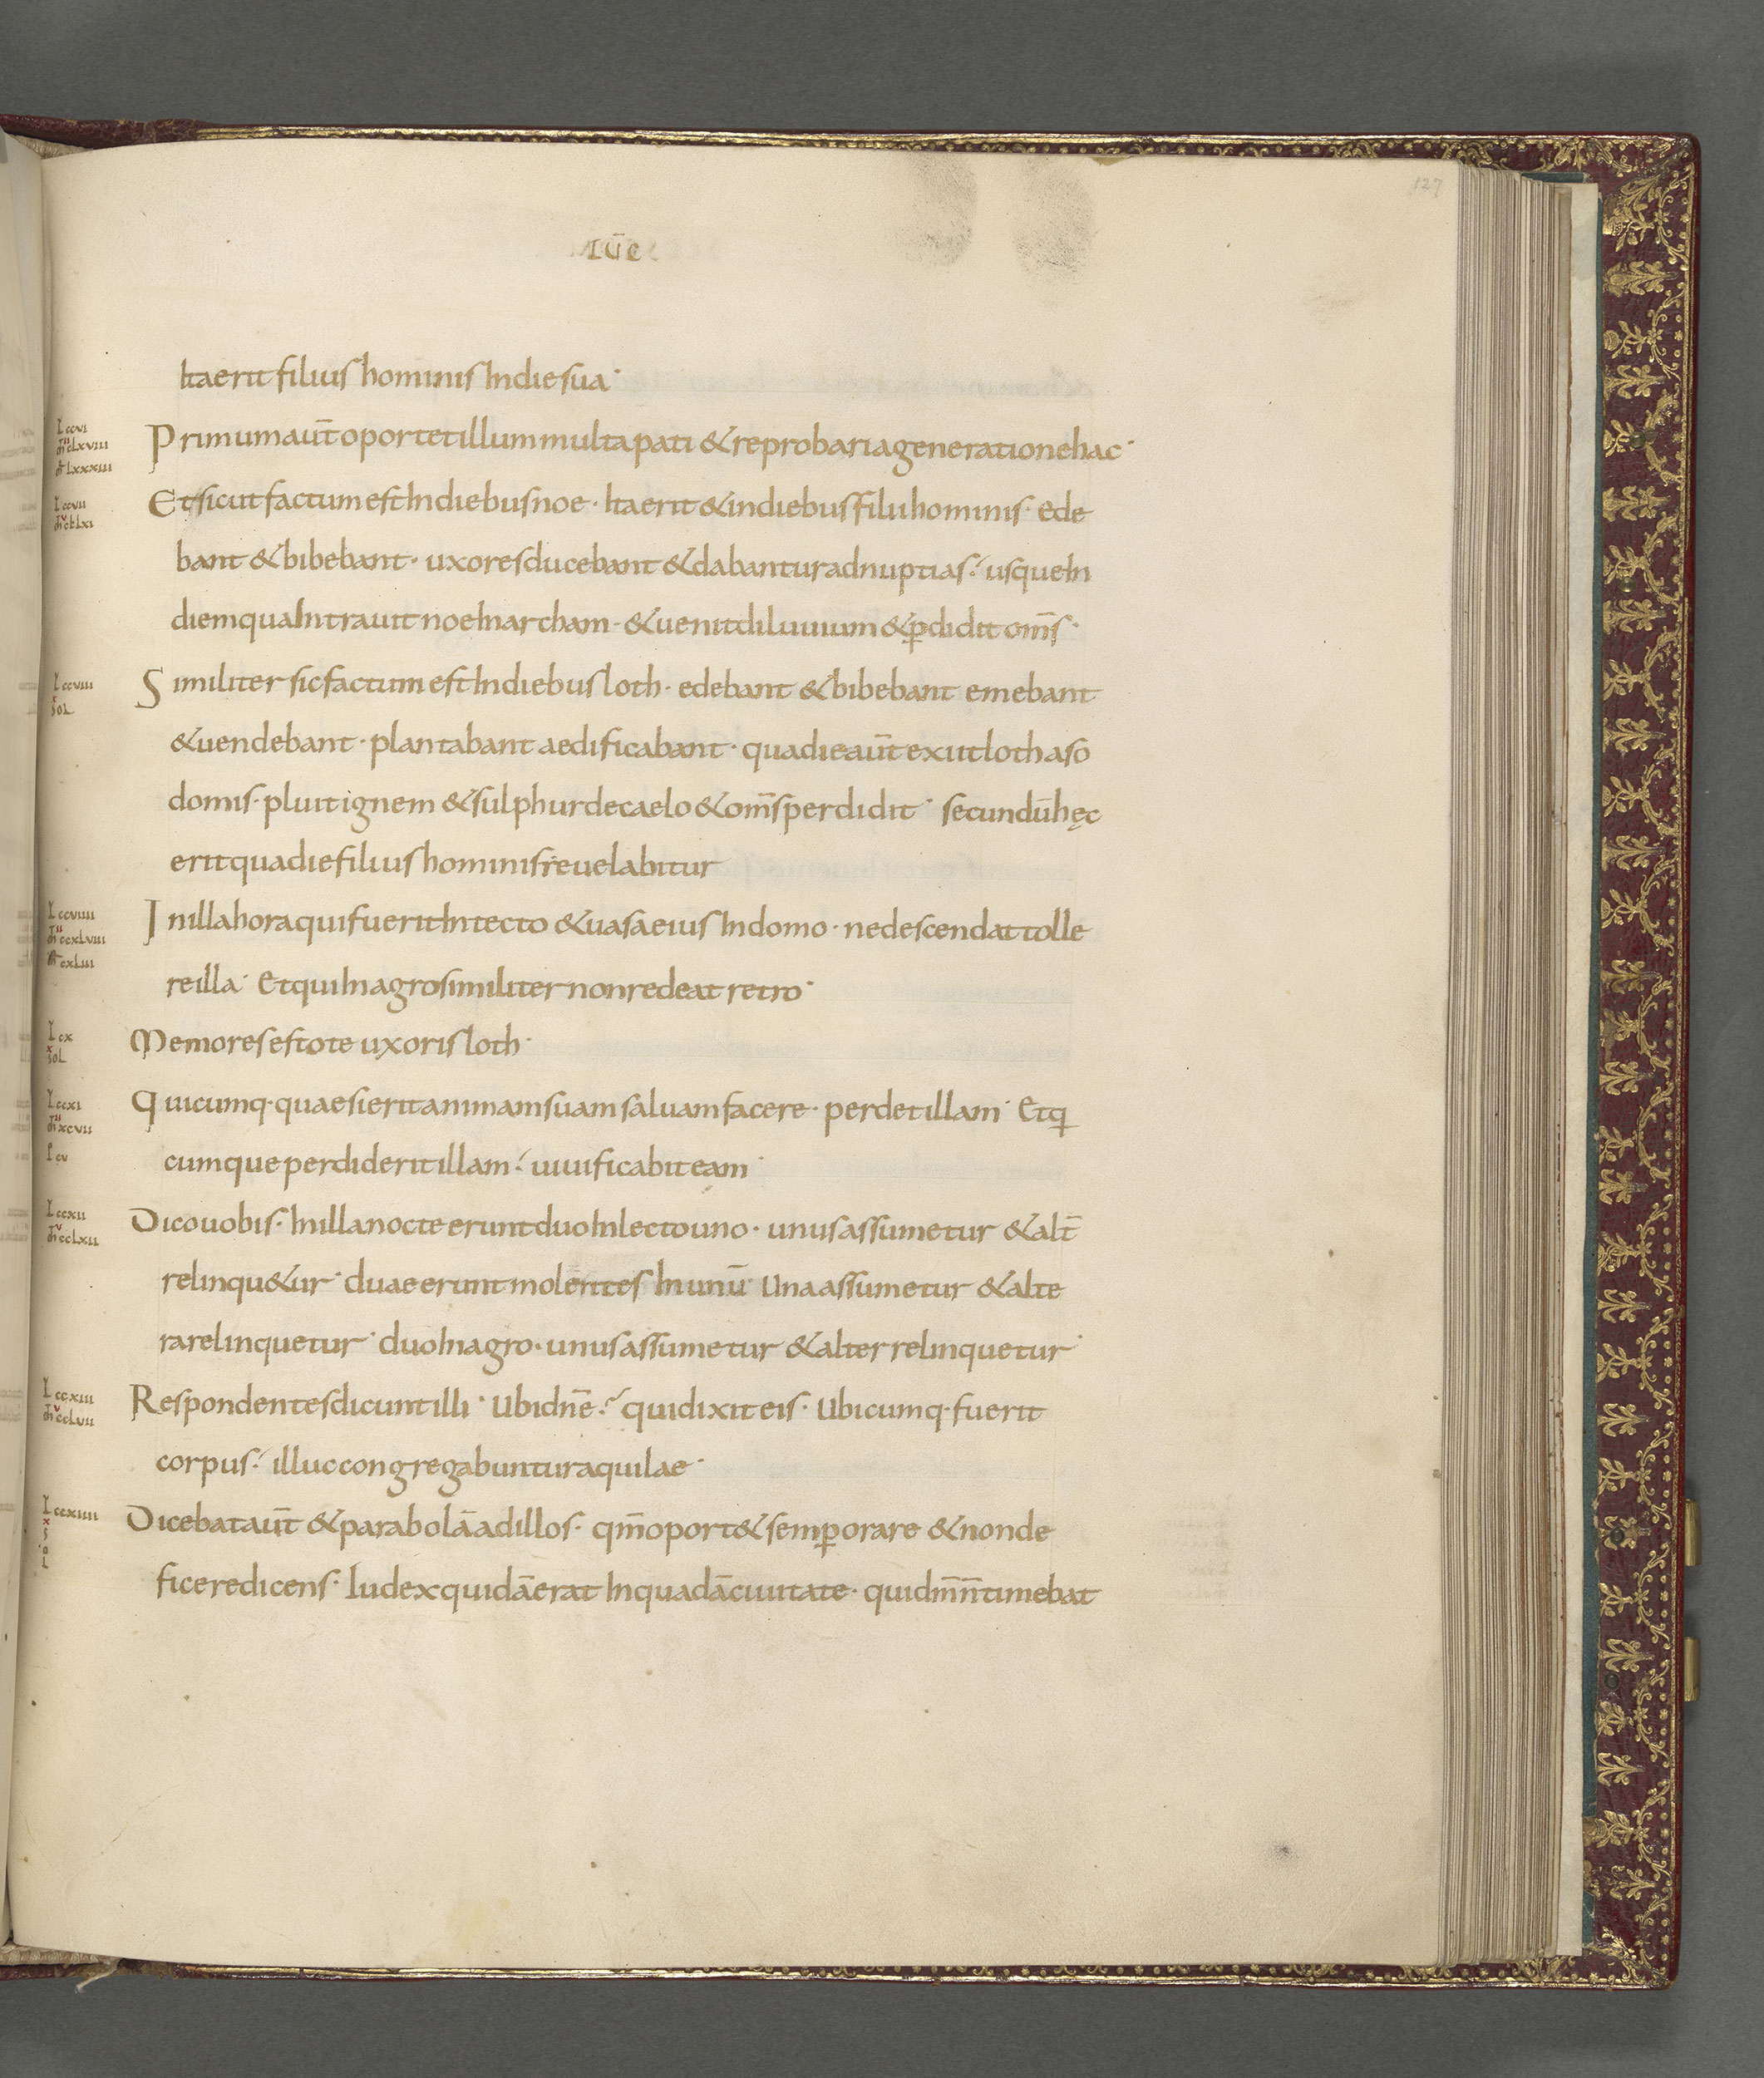 127
LŪC
ita erit filius hominis In die sua·
Primum aūt oportet illum multa pati & reprobari a generatione hac·
Et sicut factum est In diebus noe· Ita erit & in diebus filii hominis· ede
bant & bibebant· uxores ducebant & dabantur ad nuptias·́ usque In
diem qua Intrauit noe In archam· & uenit diluuium & ꝑdidit om̄s·
Similiter sic factum est In diebus loth· edebant & bibebant emebant
& uendebant· plantabant aedificabant· qua die aūt exiit loth a so
domis· pluit ignem & sulphur de caelo & om̄s perdidit· secundū hęc
erit qua die filius hominis reuelabitur
In illa hora qui fuerit In tecto & uasa eius In domo· ne descendat tolle
re illa· Et qui In agro similiter non redeat retro·
Memores estote uxoris loth·
Quicumq· quaesierit animam suam saluam facere· perdet illam· Et q
cumque perdiderit illam·́ uiuificabit eam·
Dico uobis· In illa nocte erunt duo In lecto uno· unus assumetur & alt̄
relinqu&ur· duae erunt molentes In unū· Una assumetur & alte
ra relinquetur· duo In agro· unus assumetur & alter relinquetur·
Respondentes dicunt illi· Ubi dn̄e·́ qui dixit eis· Ubicumq· fuerit
corpus·́ illuc congregabuntur aquilae·
Dicebat aūt & parabolā ad illos· qm̄ oport& semꝑ orare & non de
ficere dicens· Iudex quidā erat In quadā ciuitate· qui dm̄ n̄ timebat
L ccvi
M clxviii
M lxxxiii
L ccvii
L ccviii
sol
L ccviiii
M ccxlviii
M cxliii
L ccx
sol
L ccxi
M xcvii
I cv
L ccxii
M cclxii
L ccxiii
M cclvii
L ccxiiii
sol